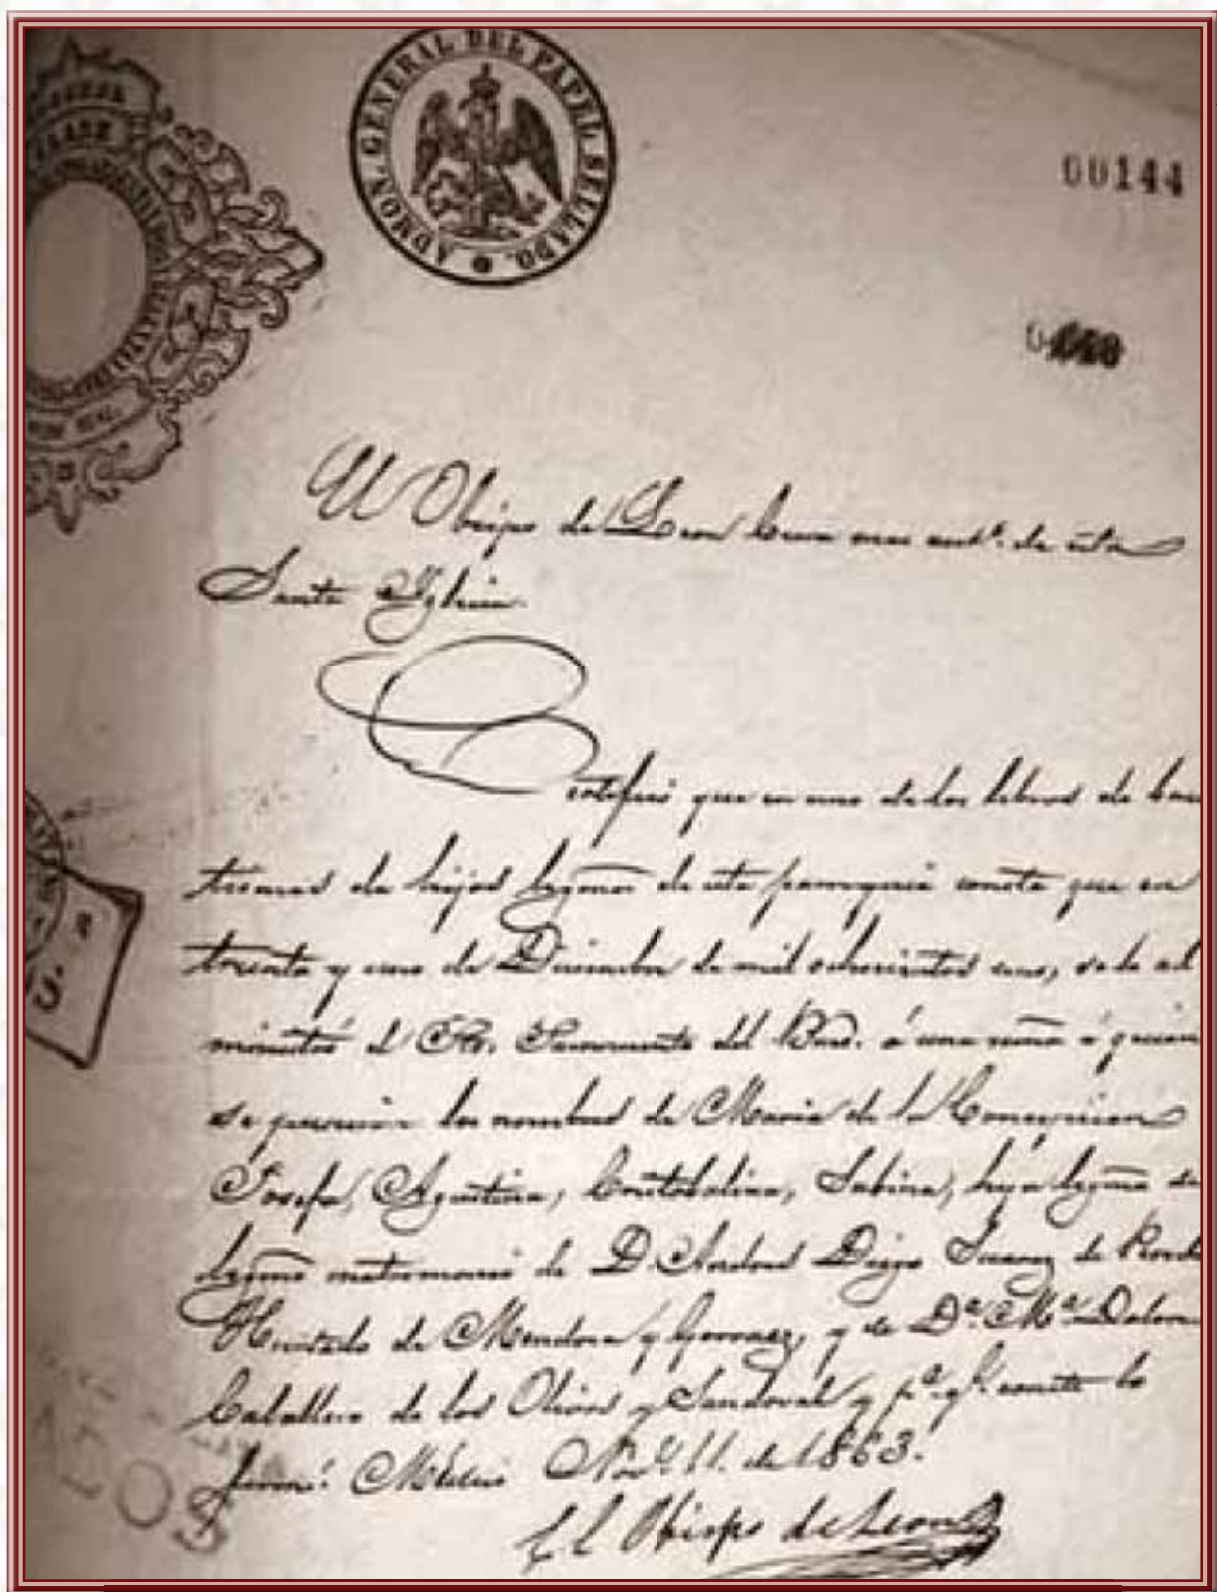 ADMON. GENERAL DEL PAPEL SELLADO.
00144
El Obispo de Leon Cura mas antº. de esta
Santa Yglesia.
Certifico que en uno de los libros de bau
tismos de hijos legmos de esta parroquia consta que en
treinta y uno de Diciembre de mil ochocientos uno, se le ad
ministró el Sto. Sacramento del Bmo. á una niña á quien
se pusieron los nombres de Maria de la Concepcion
Josefa, Agustina, Cristobalina, Sabina, hija legma de
legmo matrimonio de D. Andres Diego Suarez de
Hurtado de Mendoza y y de Dª. Mª. Dolores
Caballero de los Olivos y Sandoval y pª. qe. conste lo
firmé. Méjico Nove. 11. de 1863.
El Obispo de Leon